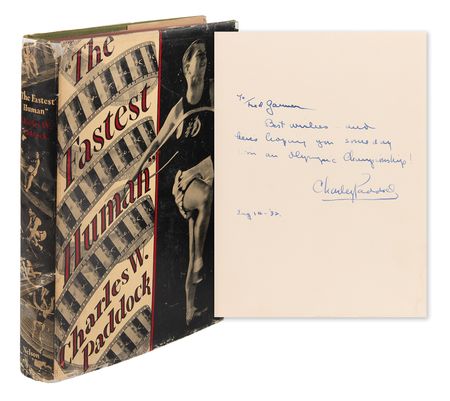 "The Fastest
Human"
Charles W.
Paddock
Nelson
"The
Fastest
Human"
Charles W.
Paddock
To
Best wishes and
here's hoping you some day
win an Olympic Championship!
Charley Paddock
Aug 10 - 32.